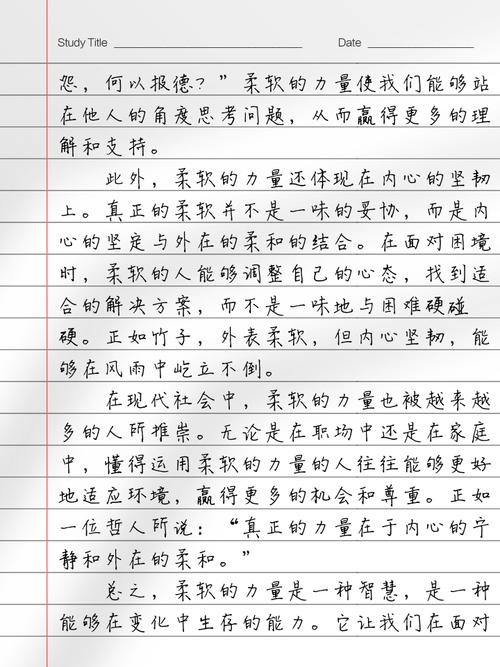 Study Title
Date
怨，何以报德？”柔软的力量使我们能够站
在他人的角度思考问题，从而赢得更多的理
解和支持。
此外，柔软的力量还体现在内心的坚韧
上。真正的柔软并不是一味的妥协，而是内
心的坚定与外在的柔和的结合。在面对困境
时，柔软的人能够调整自己的心态，找到适
合的解决方案，而不是一味地与困难硬碰
硬。正如竹子，外表柔软，但内心坚韧，能
够在风雨中屹立不倒。
在现代社会中，柔软的力量也被越来越
多的人所推崇。无论是在职场中还是在家庭
中，懂得运用柔软的力量的人往往能够更好
地适应环境，赢得更多的机会和尊重。正如
一位哲人所说：“真正的力量在于内心的宁
静和外在的柔和。”
总之，柔软的力量是一种智慧，是一种
能够在变化中生存的能力。它让我们在面对